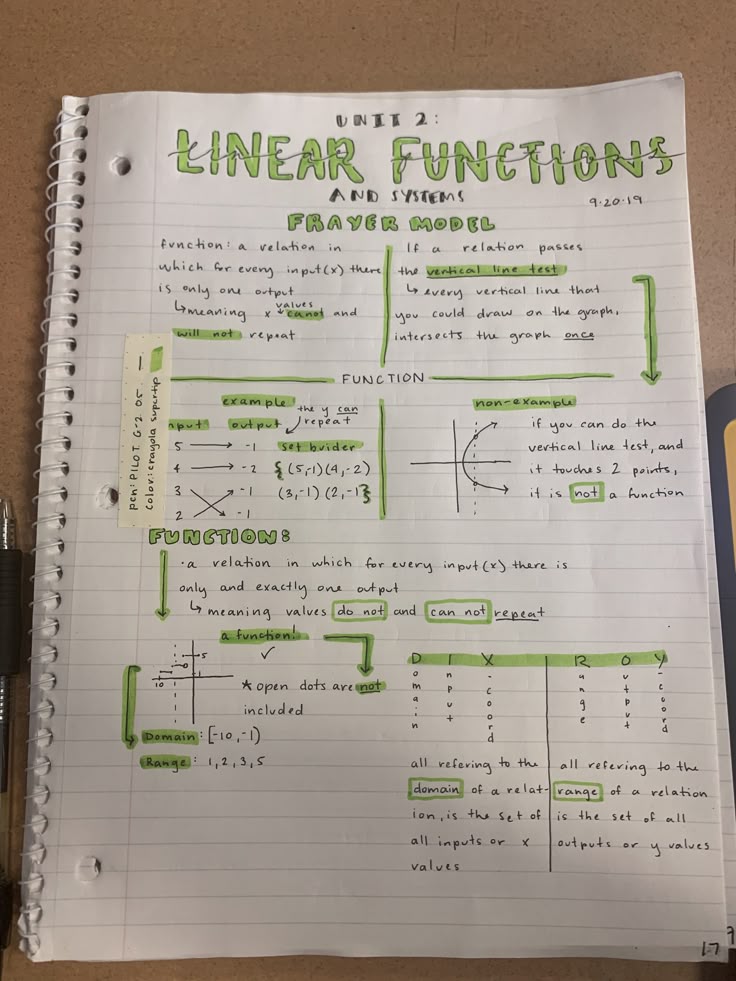 UNIT 2:
LINEAR FUNCTIONS
AND SYSTEMS
9.20.19
FRAYER MODEL
function: a relation in
which for every input(x) there
is only one output
↳meaning x values canot and
will not repeat
If a relation passes
the vertical line test
↳ every vertical line that
you could draw on the graph,
intersects the graph once
FUNCTION
pen: PILOT G-2 05
color: crayola supertip
example
the y can
repeat
nput output
5 → -1
4 → -2
3 -1
2 -1
set buider
{(5,-1)(4,-2)
(3,-1)(2,-1}
non-example
if you can do the
vertical line test, and
it touches 2 points,
it is not a function
FUNCTION:
·a relation in which for every input(x) there is
only and exactly one output
↳ meaning values do not and can not repeat
a function!
✓
5
10
1
* open dots are not
included
Domain: [-10,-1)
Range: 1,2,3,5
D I X
Domain input x-coord
all refering to the
domain of a relat-
ion, is the set of
all inputs or x
values
R O Y
Range output y-coord
all refering to the
range of a relation
is the set of all
outputs or y values
17